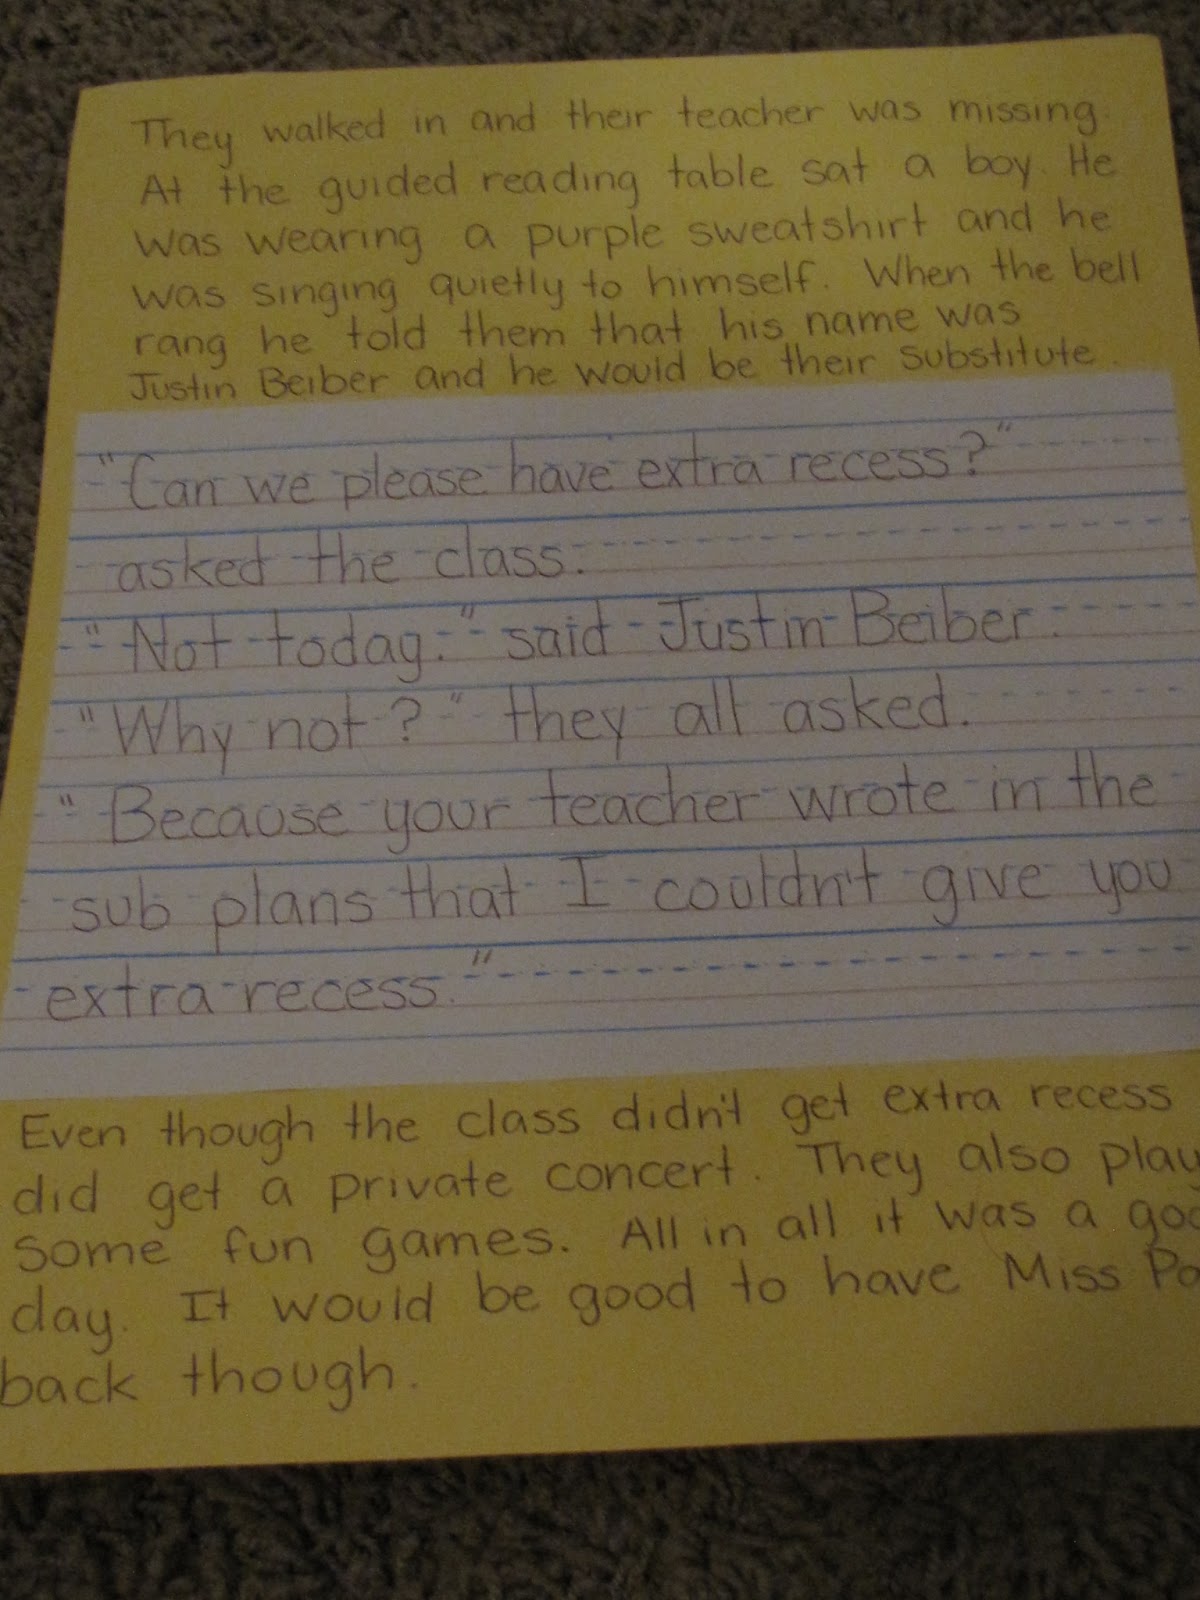 They walked in and their teacher was missing.
At the guided reading table sat a boy. He
was wearing a purple sweatshirt and he
was singing quietly to himself. When the bell
rang he told them that his name was
Justin Beiber and he would be their substitute.
"Can we please have extra recess?"
asked the class.
"Not today." said Justin Beiber.
"Why not?" they all asked.
"Because your teacher wrote in the
sub plans that I couldn't give you
extra recess."
Even though the class didn't get extra recess
did get a private concert. They also play
some fun games. All in all it was a goo
day. It would be good to have Miss Pa
back though.